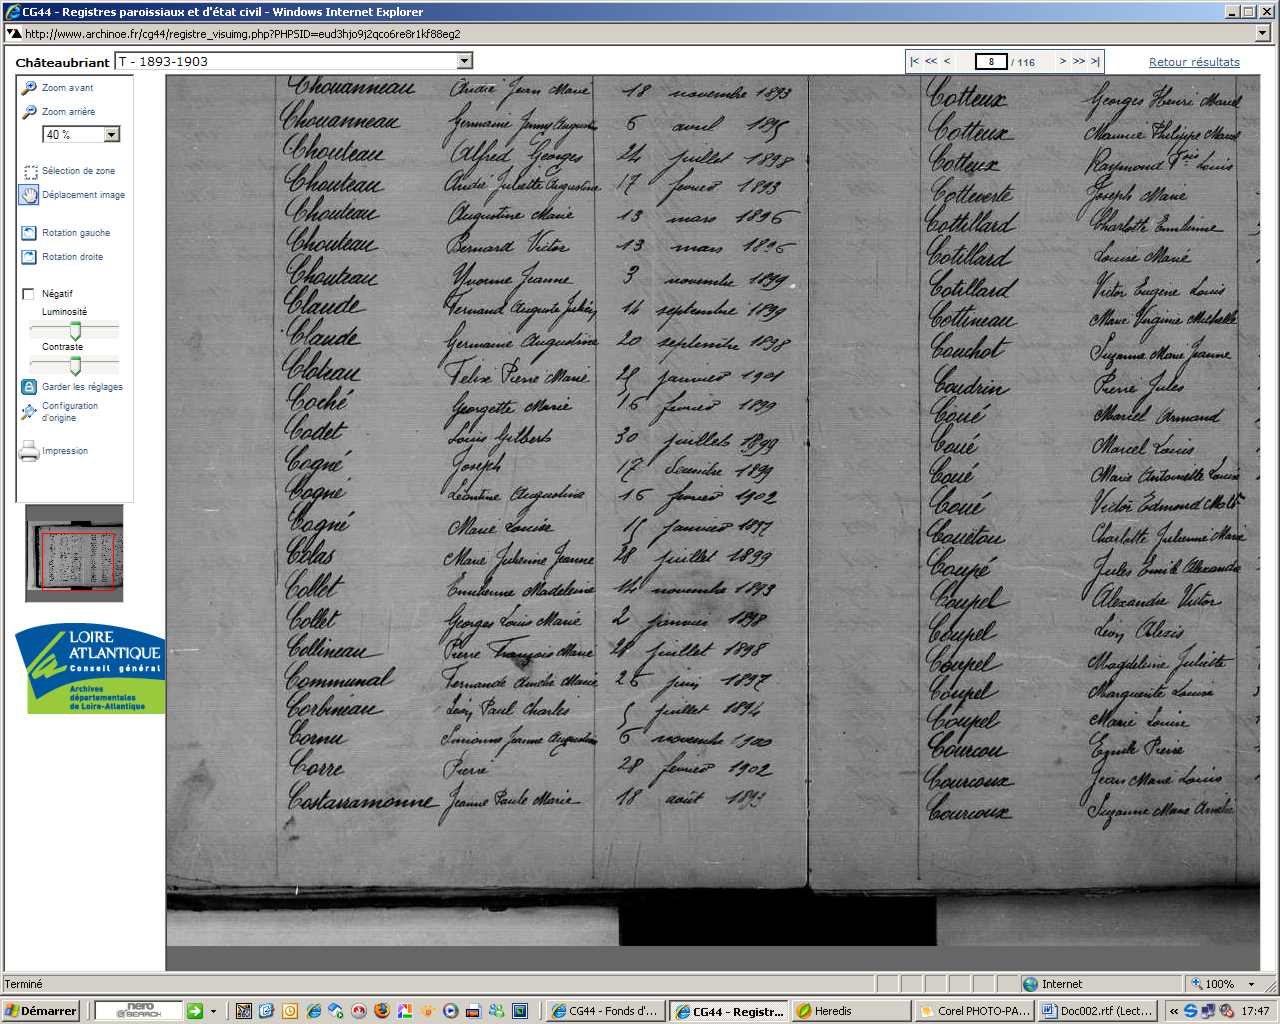 CG44 - Registres paroissiaux et d'état civil - Windows Internet Explorer
http://www.archinoe.fr/cg44/registre_visuimg.php?PHPSID=eud3hjo9j2qco6re8r1kf88eg2
Châteaubriant T - 1893-1903
|< << < 8 / 116 > >> >|
Retour résultats
Zoom avant
Zoom arrière
40 %
Sélection de zone
Déplacement image
Rotation gauche
Rotation droite
Négatif
Luminosité
Contraste
Garder les réglages
Configuration
d'origine
Impression
LOIRE
ATLANTIQUE
Conseil général
Archives
départementales
de Loire-Atlantique
Chouanneau André Jean Marie 18 novembre 1893
Chouanneau Germaine Jenny Augustine 6 avril 1895
Chouteau Alfred Georges 24 juillet 1898
Chouteau André Juliette Augustine 17 février 1893
Chouteau Augustine Marie 13 mars 1896
Chouteau Bernard Victor 13 mars 1896
Chouteau Yvonne Jeanne 3 novembre 1899
Claude Fernand Auguste Julien 14 septembre 1899
Claude Germaine Augustine 20 septembre 1898
Felix Pierre Marie janvier 1901
Coché Georgette Marie 16 février 1899
Codet Louis Gilbert 30 juillet 1899
Cogné Joseph 17 Décembre 1899
Cogné Léontine Augustine 16 février 1902
Cogné Marie Louise 15 janvier 1897
Colas Marie Julienne Jeanne 28 juillet 1899
Collet Emilienne Madeleine 14 novembre 1893
Collet Georges Louis Marie 2 janvier 1898
Collineau Pierre François Marie 28 juillet 1898
Communal Fernande Marie 26 juin 1897
Corbineau Léon Paul Charles 5 juillet 1894
Cornu Simonne Jeanne Augustine 6 novembre 1900
Corre Pierre 28 février 1902
Costarramonne Jeanne Paule Marie 18 août 1893
Cotteux Georges Henri Marcel
Cotteux Maurice Philippe Marcel
Cotteux Raymond Fois Louis
Cotteverte Joseph Marie
Cottillard Charlotte Emilienne
Cotillard Louise Marie
Cotillard Victor Eugène Louis
Cottineau Marie Virginie Michelle
Couchot Suzanne Marie Jeanne
Coudrin Pierre Jules
Coué Marcel Armand
Coué Marcel Louis
Coué Marie Antoinette Louise
Coué Victor Edmond
Couëtou Charlotte Julienne Marie
Coupé Jules Emile Alexandre
Coupel Alexandre Victor
Coupel Léon Alexis
Coupel Magdeleine Juliette
Coupel Marguerite Louise
Coupel Marie Louise
Courcou Emile Pierre
Courcoux Jean Marie Louis
Courcoux Suzanne Marie Amélie
Terminé
Internet
100%
Démarrer
nero
SEARCH
CG44 - Fonds d'...
CG44 - Registr...
Heredis
Corel PHOTO-PA...
Doc002.rtf (Lect...
17:47